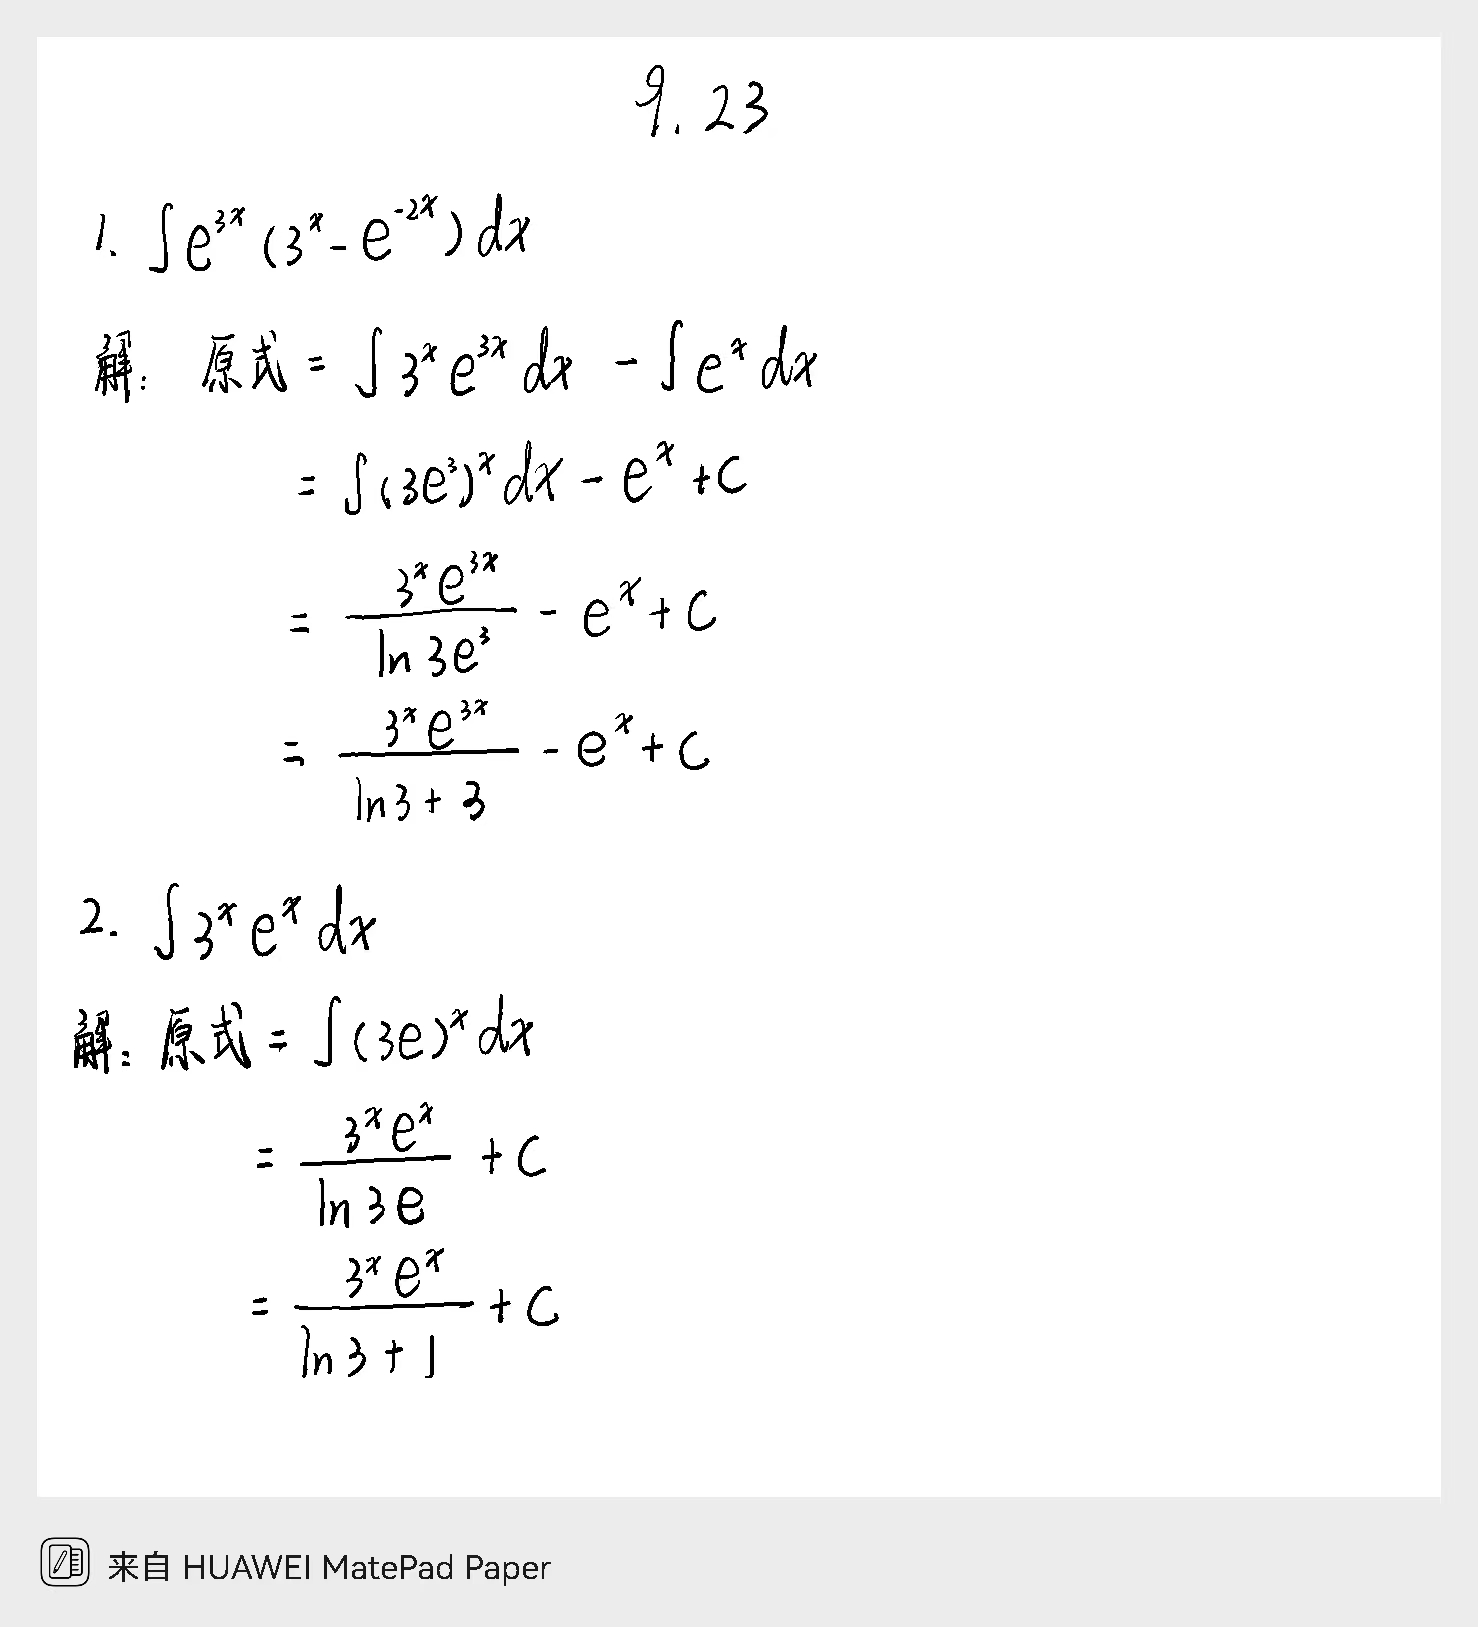 9.23
1. ∫e³ˣ(3ˣ-e⁻²ˣ)dx
解: 原式=∫3ˣe³ˣdx -∫eˣdx
=∫(3e³)ˣdx-eˣ+C
=3ˣe³ˣ/ln3e³-eˣ+C
=3ˣe³ˣ/(ln3+3)-eˣ+C
2. ∫3ˣeˣdx
解: 原式=∫(3e)ˣdx
=3ˣeˣ/ln3e+C
=3ˣeˣ/(ln3+1)+C
来自 HUAWEI MatePad Paper